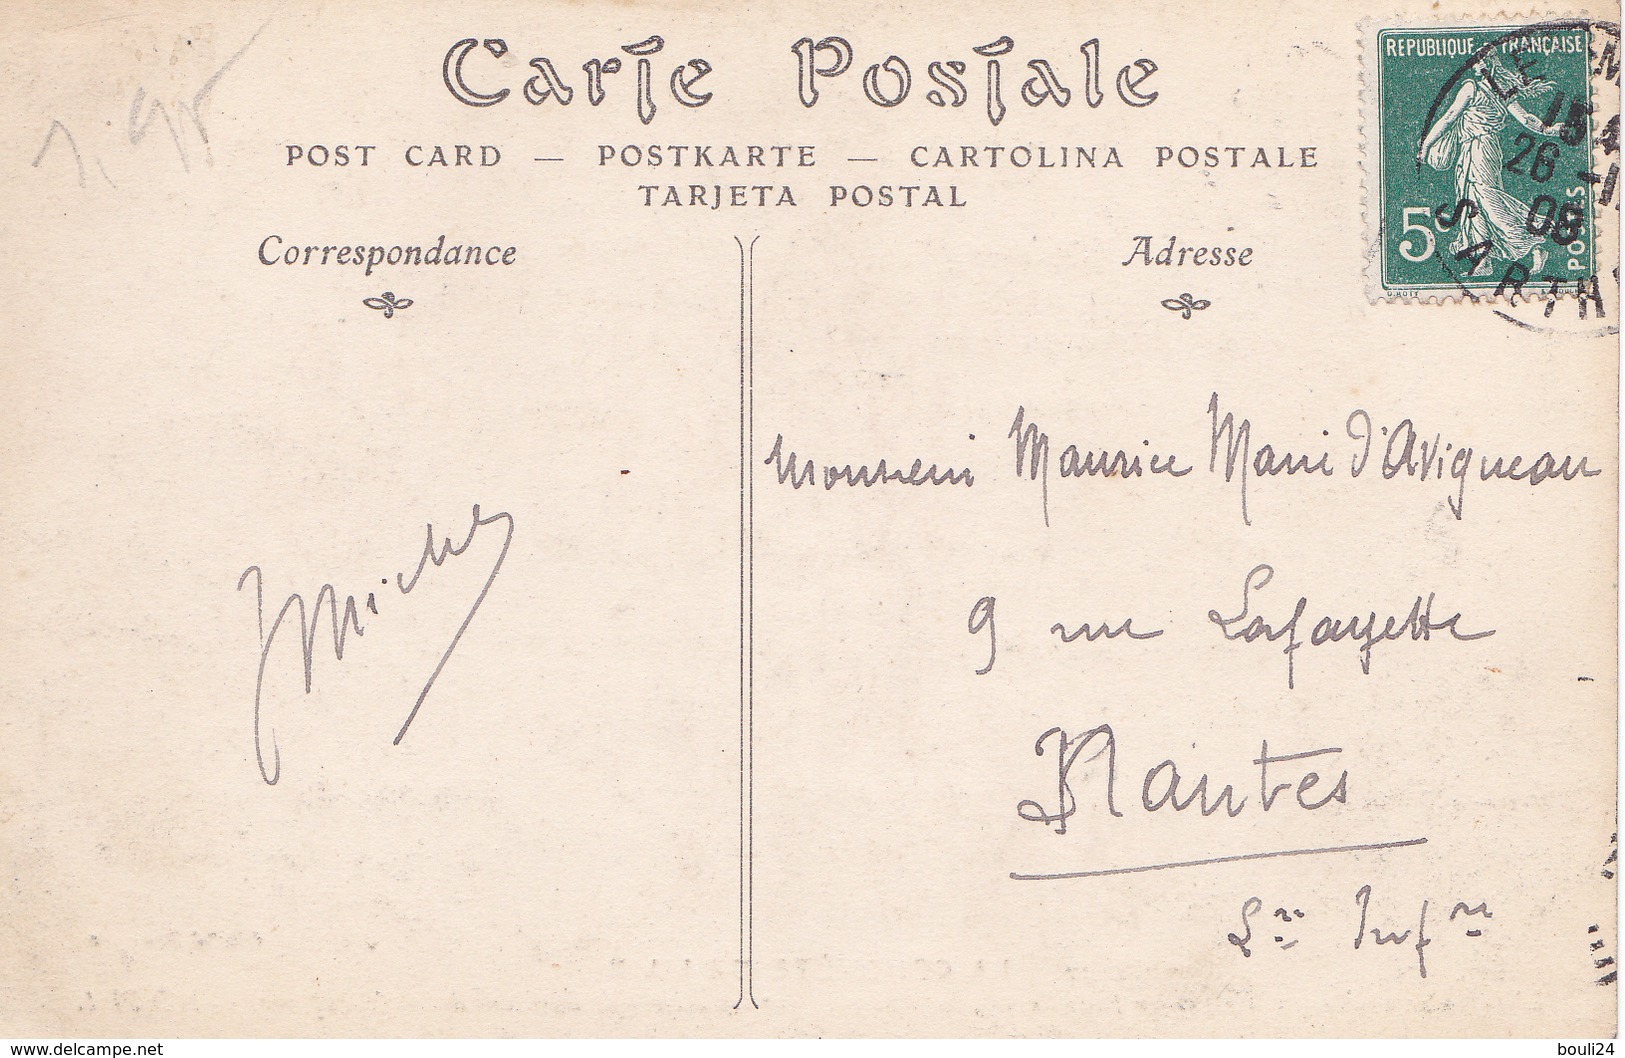 Carte Postale
POST CARD — POSTKARTE — CARTOLINA POSTALE
TARJETA POSTAL
Correspondance
Adresse
REPUBLIQUE FRANÇAISE
5c
POSTES
O. ROTY
LE M
15
26 -1
08
SARTH
Monsieur Maurice Marie d'Avigneau
9 rue Lafayette
Nantes
Lre Infre
Michel
www.delcampe.net
bouli24